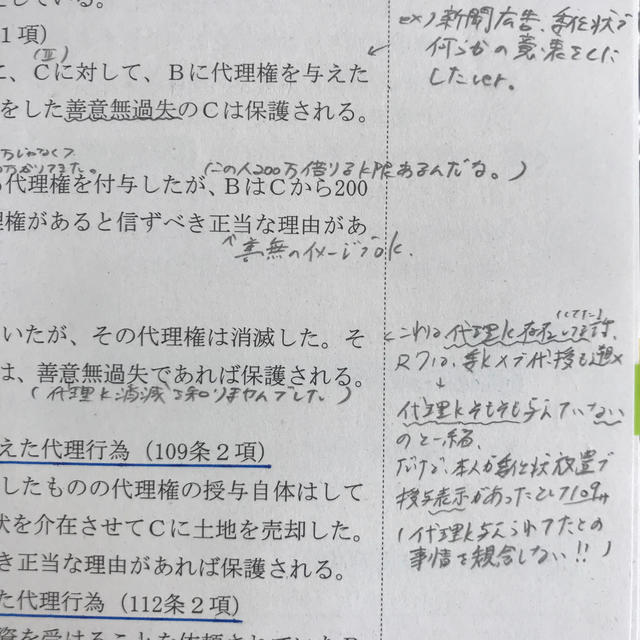 している。
1項)
(Ⅲ)
に、Cに対して、Bに代理権を与えた
をした善意無過失のCは保護される。
(この人200万借りるK限あるんだな。)
代理権を付与したが、BはCから200
権があると信ずべき正当な理由があ
↑善無のイメージでok.
いたが、その代理権は消滅した。そ
は、善意無過失であれば保護される。
(代理K消滅を知りませんでした。)
えた代理行為(109条2項)
したものの代理権の授与自体はして
状を介在させてCに土地を売却した。
き正当な理由があれば保護される。
た代理行為(112条2項)
資を受けることを依頼されていたB
ex) 新聞広告、委任状で
何らかの意表をした
したver.
(してた)
これは代理K存在
↓
代理Kそもそも与えていない
のと一緒。
だけど、本人が委任状放置で
授与表示があったとして109
(代理K与えられてたとの
事情と競合しない!!)